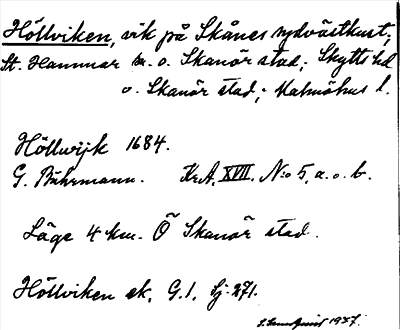 Höllviken, vik på Skånes sydvästkust;
St. Hammar sn. o. Skanör stad; Skytts hd
o. Skanör stad; Malmöhus l.
Höllwijk 1684.
G. Buhrmann. Kr.A. XVII. N:o 5, a. o. b.
Läge 4 km. Ö Skanör stad.
Höllviken ek. G.1. Sj. 271.
1927.